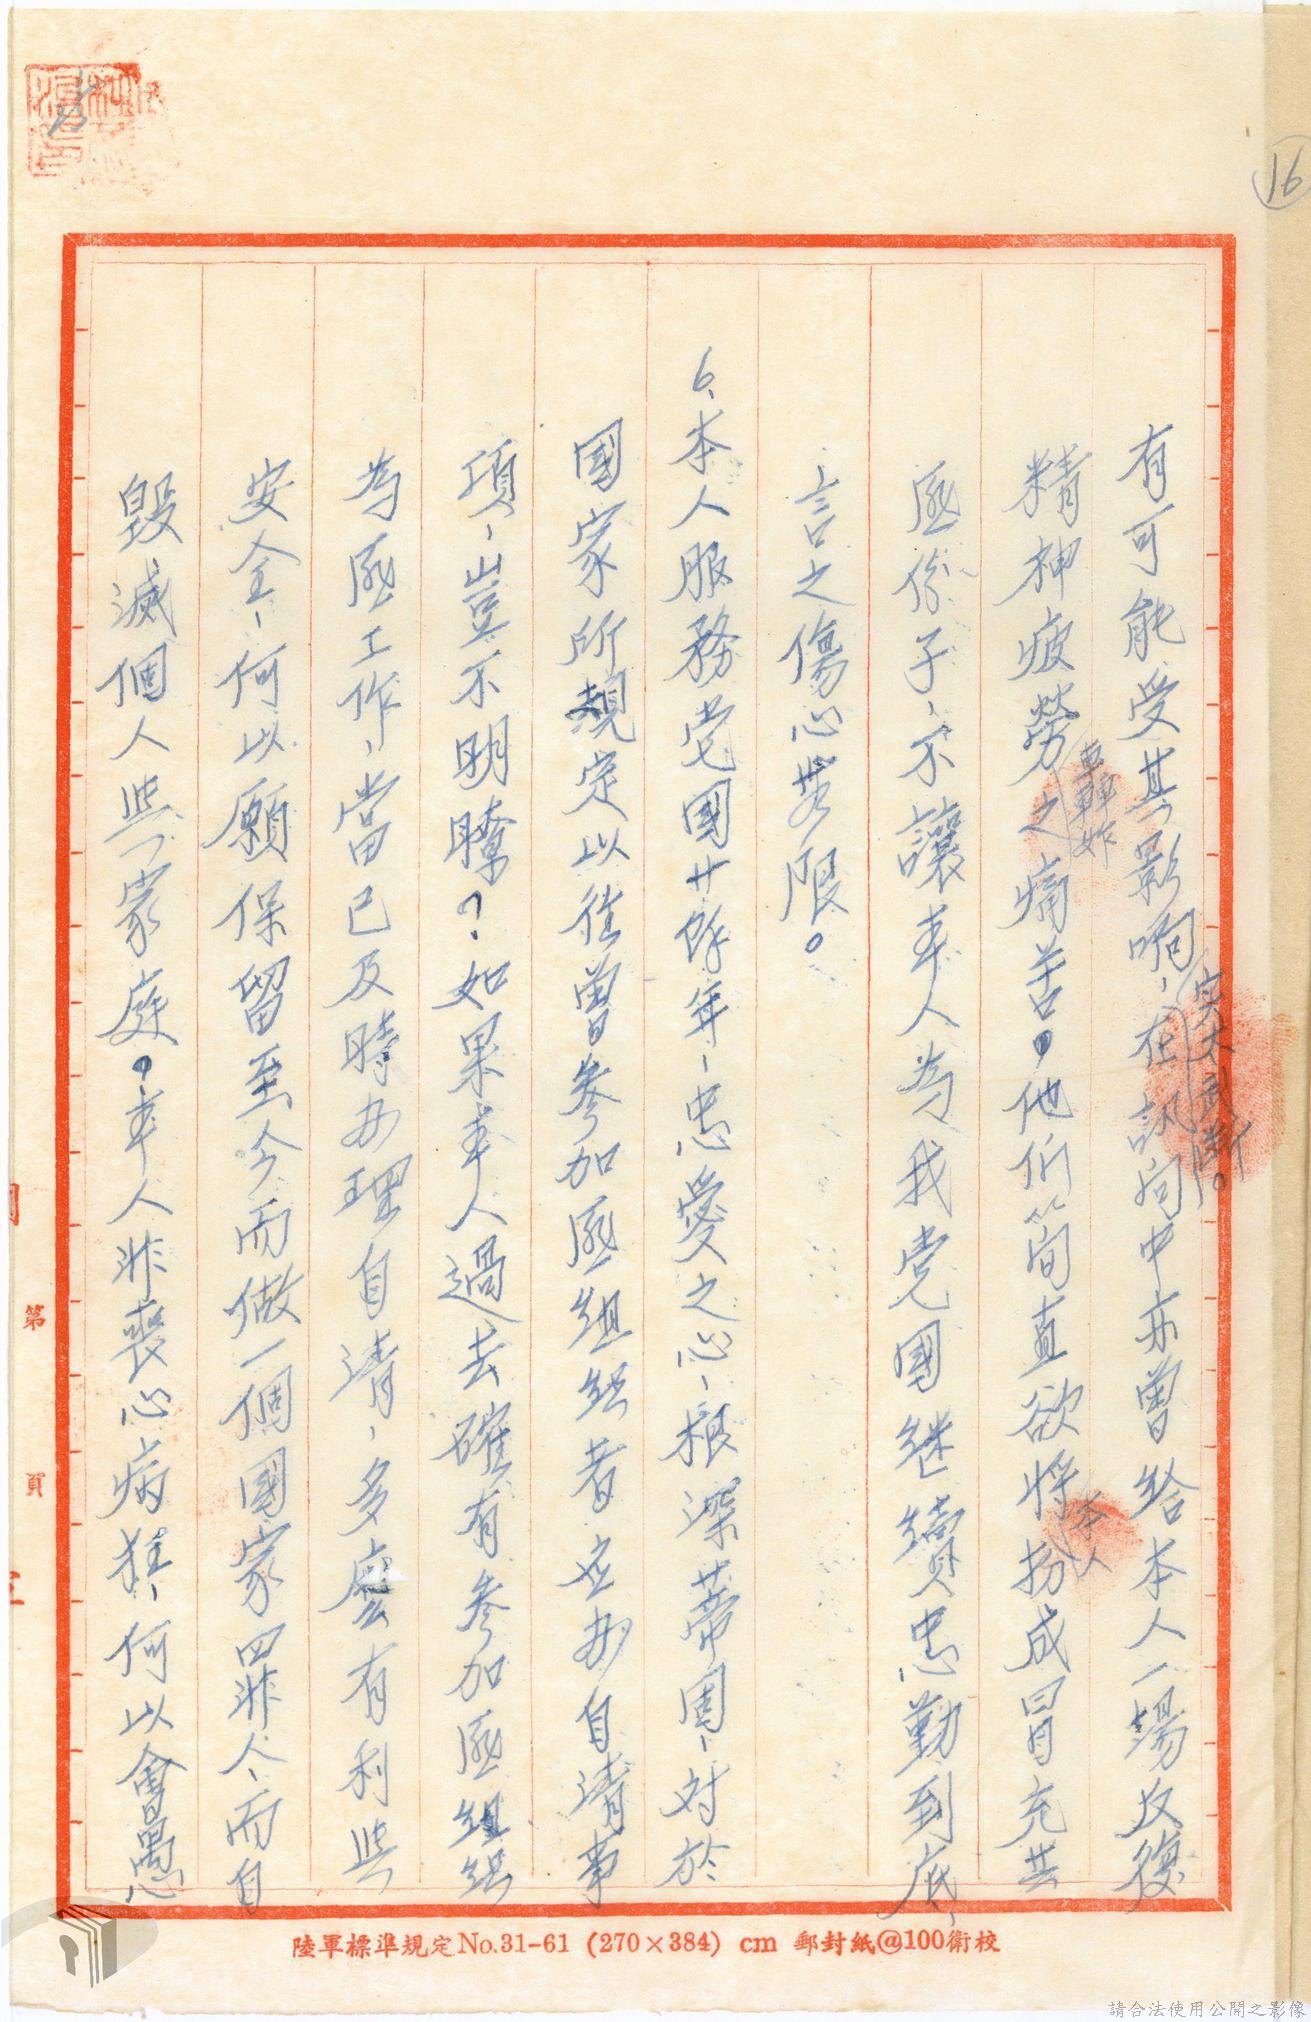 16
有可能受其影响、在訊问中亦曾給本人一場反復
实太武断。
精神疲勞之痛苦。他们简直欲将扮成冒充共
轟炸
本人
匪份子、不讓本人為我党國继續忠勤到底、
言之傷心無限。
6、本人服務党國廿餘年、忠愛之心、根深蒂固、对於
國家所規定以往曾參加匪組织者应办自清事
項、豈不明瞭？如果本人過去確有參加匪組織
為匪工作、當已及時办理自清、多麼有利些
安全、何以願保留至今而做一個國家罪人、而自
毀滅個人与家庭。本人非喪心病狂、何以會愚
第 頁
陸軍標準規定No.31-61 (270×384) cm 郵封紙@100衛校
請合法使用公開之影像